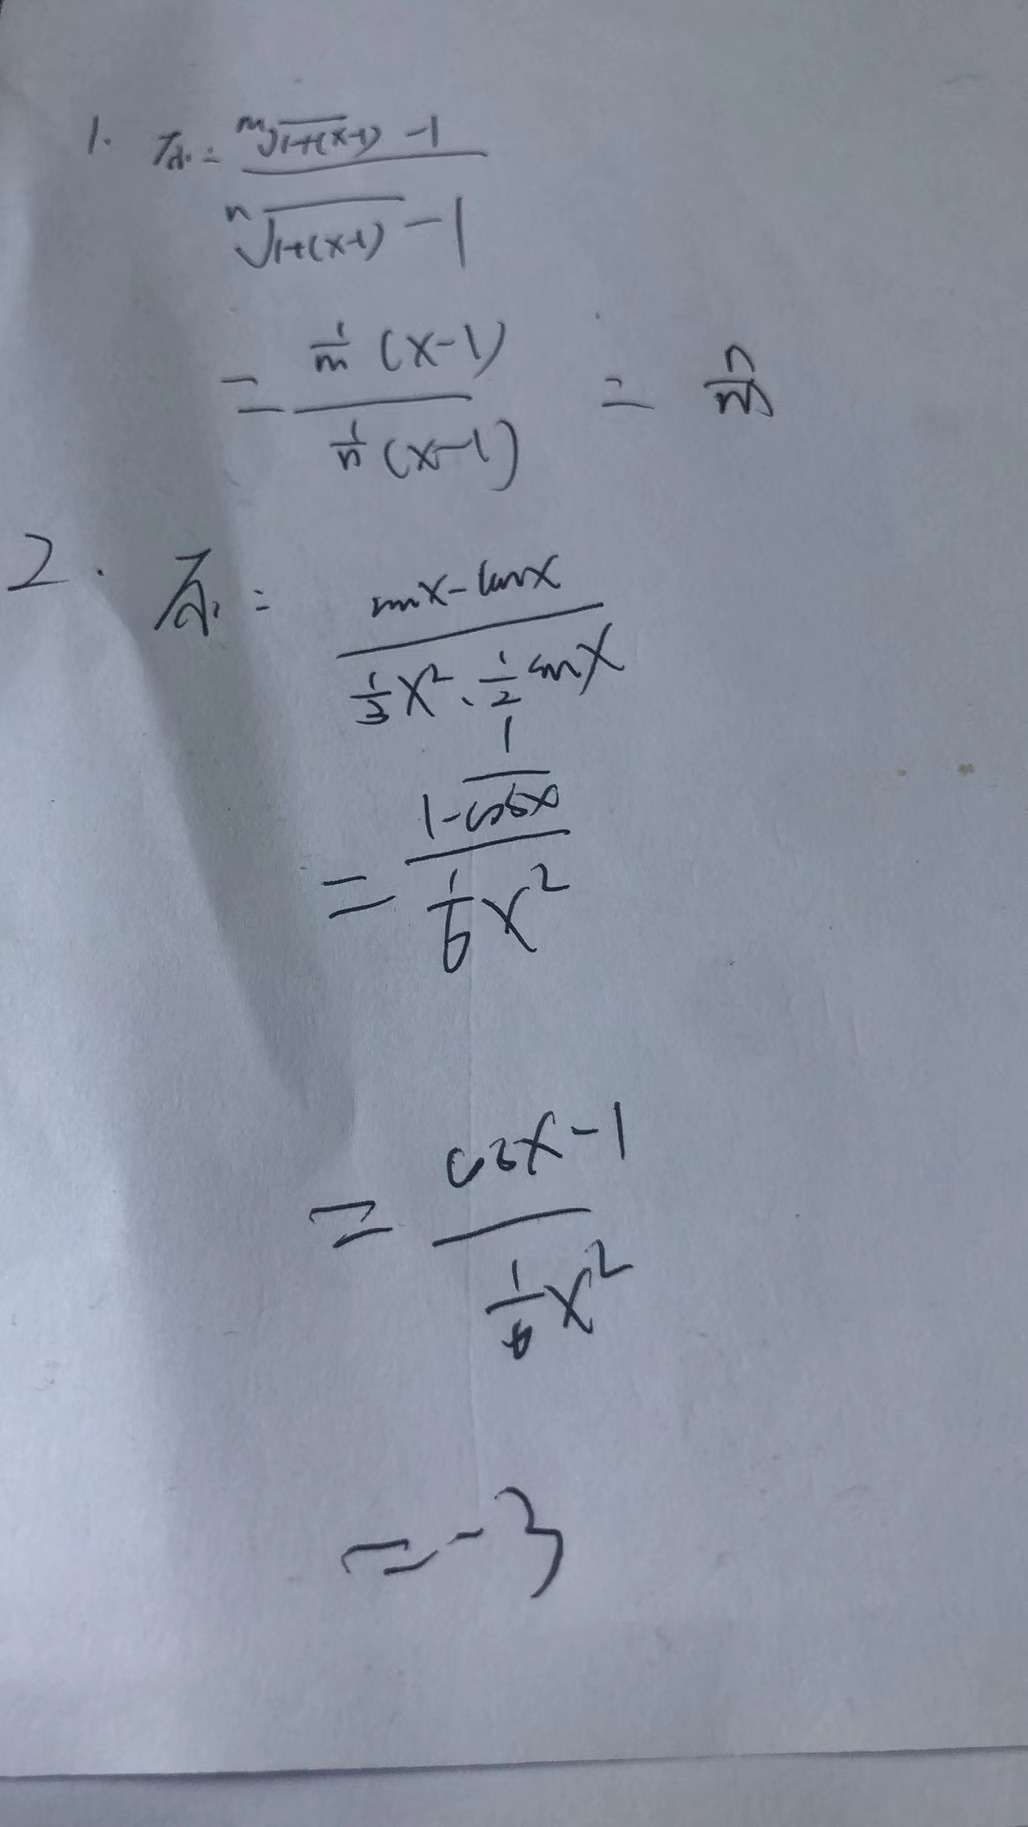 1. 原式 = \frac{\sqrt[m]{1+(x-1)} - 1}{\sqrt[n]{1+(x-1)} - 1}
= \frac{\frac{1}{m}(x-1)}{\frac{1}{n}(x-1)} = \frac{n}{m}
2. 原式 = \frac{sinx-tanx}{\frac{1}{3}x^2 \cdot \frac{1}{2}sinx}
= \frac{1-\frac{1}{cosx}}{\frac{1}{6}x^2}
= \frac{cosx-1}{\frac{1}{6}x^2}
= -3